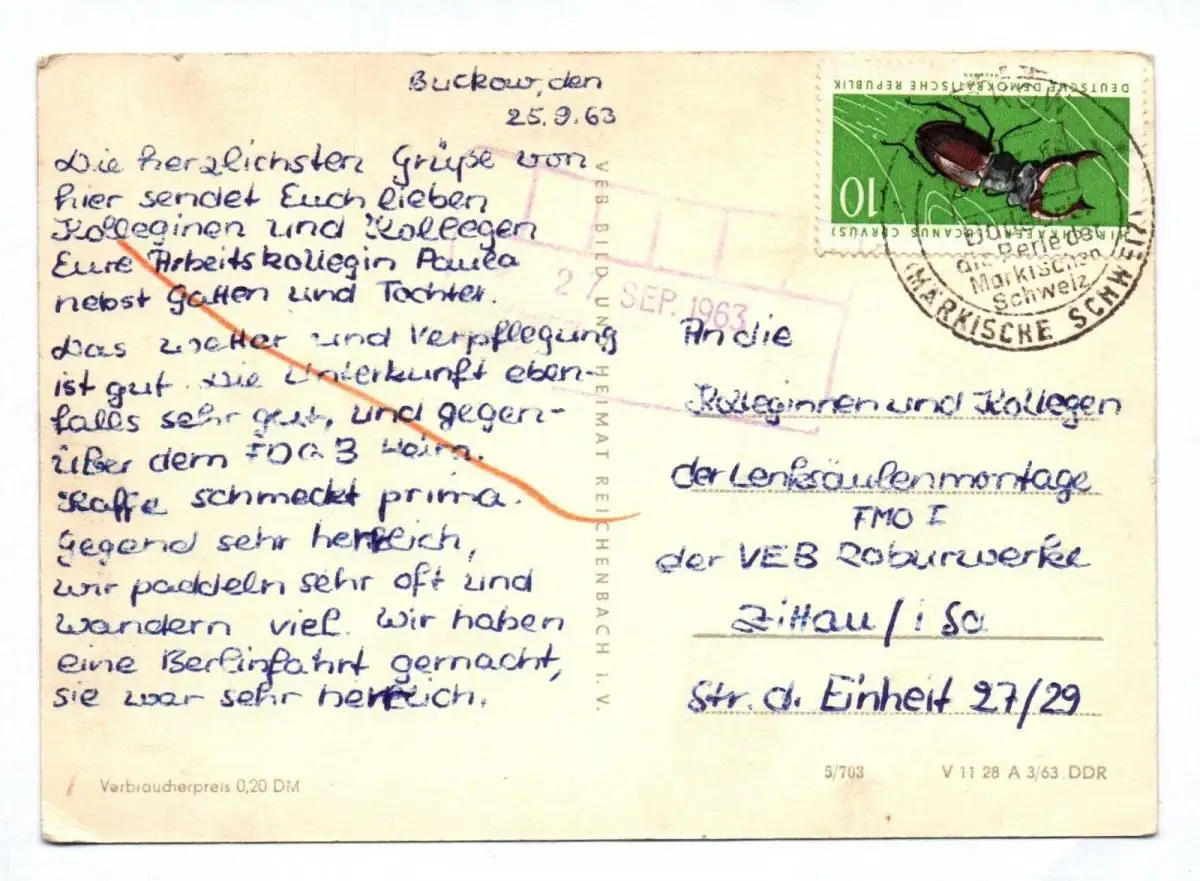 Buckow, den
25.9.63
Die herzlichsten Grüße von
hier sendet Euch lieben
Kolleginen und Kollegen
Eure Arbeitskollegin Paula
nebst Gatten und Tochter.
Das Wetter und Verpflegung
ist gut. Die Unterkunft eben-
falls sehr gut, und gegen-
über dem FDGB Heim.
Kaffe schmeckt prima.
Gegend sehr herrlich,
wir paddeln sehr oft und
wandern viel. Wir haben
eine Berlinfahrt gemacht,
sie war sehr herrlich.
Verbraucherpreis 0,20 DM
VEB BILD UND HEIMAT REICHENBACH I. V.
27. SEP. 1963
DEUTSCHE DEMOKRATISCHE REPUBLIK
10
(LUCANUS CERVUS)
die Perle der
Märkischen
Schweiz
(MÄRKISCHE SCHWEIZ)
An die
Kolleginnen und Kollegen
der Lenksäulenmontage
FMO I
der VEB Roburwerke
Zittau / i Sa
Str. d. Einheit 27/29
5/703
V 11 28 A 3/63 DDR